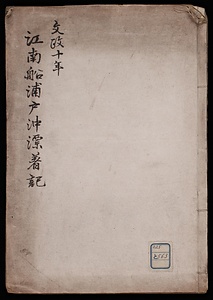 文政十年
江南船浦戸沖漂着記